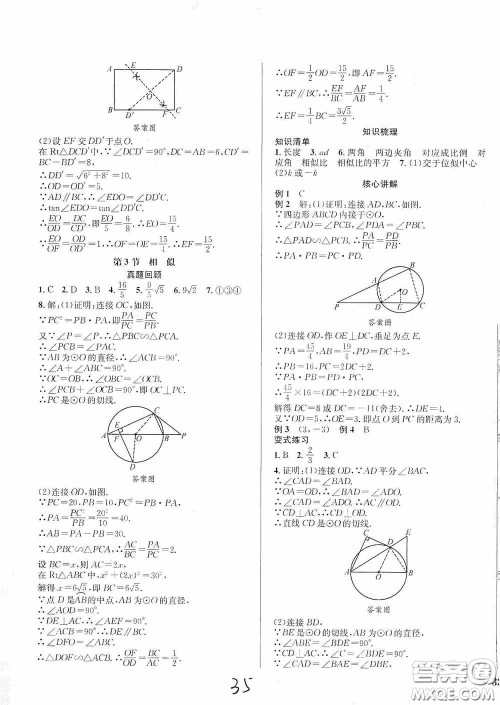 A
E
D
B
D′
F
C
答案图
(2)设EF交DD′于点O.
在Rt△DCD′中,∵∠DCD′=90°,DC=AB=6,CD′=
BC-BD′=8,
∴DD′=√(6²+8²)=10.
∴OD=OD′=5.
∵AD∥BC,∴∠EDO=∠DD′C.
∴tan∠EDO=tan∠DD′C.
∴EO/OD=DC/CD′,即EO/5=6/8.∴EO=15/4.
第3节 相似
真题回顾
1.C 2.D 3.B 4.16/5 6.9√2 7.①③④
8.解:(1)证明:连接OC,如图.
∵PC²=PB·PA,即PA/PC=PC/PB.
又∵∠P=∠P,∴△PBC∽△PCA.
∴∠PCB=∠PAC.
∵AB为⊙O的直径,∴∠ACB=90°.
∴∠A+∠ABC=90°.
∵OC=OB,∴∠OBC=∠OCB.
∴∠PCB+∠OCB=90°,即OC⊥PC.
∴PC是⊙O的切线.
A
F
O
B
P
C
E
D
答案图
(2)连接OD,如图.
∵PC=20,PB=10,PC²=PA·PB,
∴PA=PC²/PB=20²/10=40.
∴AB=PA-PB=30.
∵△PBC∽△PCA,∴AC/BC=PA/PC=2.
设BC=x,则AC=2x,
在Rt△ABC中,x²+(2x)²=30²,
解得x=6√5,即BC=6√5.
∵点D是AB的中点,AB为⊙O的直径,
∴∠AOD=90°.
∵DE⊥AC,∴∠AEF=90°.
∵∠ACB=90°,∴DE∥BC.
∴∠DFO=∠ABC.
∴△DOF∽△ACB.∴OF/OD=BC/AC=1/2.
∴OF=1/2OD=15/2,即AF=15/2.
∵EF∥BC,∴EF/BC=AF/AB=1/4.
∴EF=1/4BC=3√5/2.
知识梳理
知识清单
1.长度 3.ad 6.两角 两边夹角 对应成比例 对
应角 相似比 相似比的平方 7.(1)交于位似中心
(2)k或-k
核心讲解
例1 C
例2 解:(1)证明:连接AD,BC,如图.
∵四边形ABCD内接于⊙O,
∴∠PAD=∠PCB,∠PDA=∠PBC.
∴△PAD∽△PCB.∴PA/PC=PD/PB.
∴PA·PB=PD·PC.
B
A
O
P
D
E
C
答案图
(2)连接OD,作OE⊥DC,垂足为点E.
∵PA=45/4,AB=19/4,PD=DC+2,
∴PB=16,PC=2DC+2.
∵PA·PB=PD·PC,
∴45/4×16=(DC+2)(2DC+2).
解得DC=8或DC=-11(舍去).∴DE=4.
又∵OD=5,∴OE=3,即点O到PC的距离为3.
例3 (3,-3) 例4 B
变式练习
1.B 2.2/3 3.C
4.证明:(1)连接OD.∵AD平分∠BAC,
∴∠CAD=∠BAD.
∵OA=OD,∴∠BAD=∠ADO.
∴∠CAD=∠ADO.∴AC∥OD.
∵CD⊥AC,∴CD⊥OD.
∴直线CD是⊙O的切线.
E
C
D
A
O
B
答案图
(2)连接BD,
∵BE是⊙O的切线,AB为⊙O的直径,
∴∠ABE=∠BDE=90°.
∵CD⊥AC,∴∠C=∠BDE=90°.
∵∠CAD=∠BAE=∠DBE,
35
答案圈